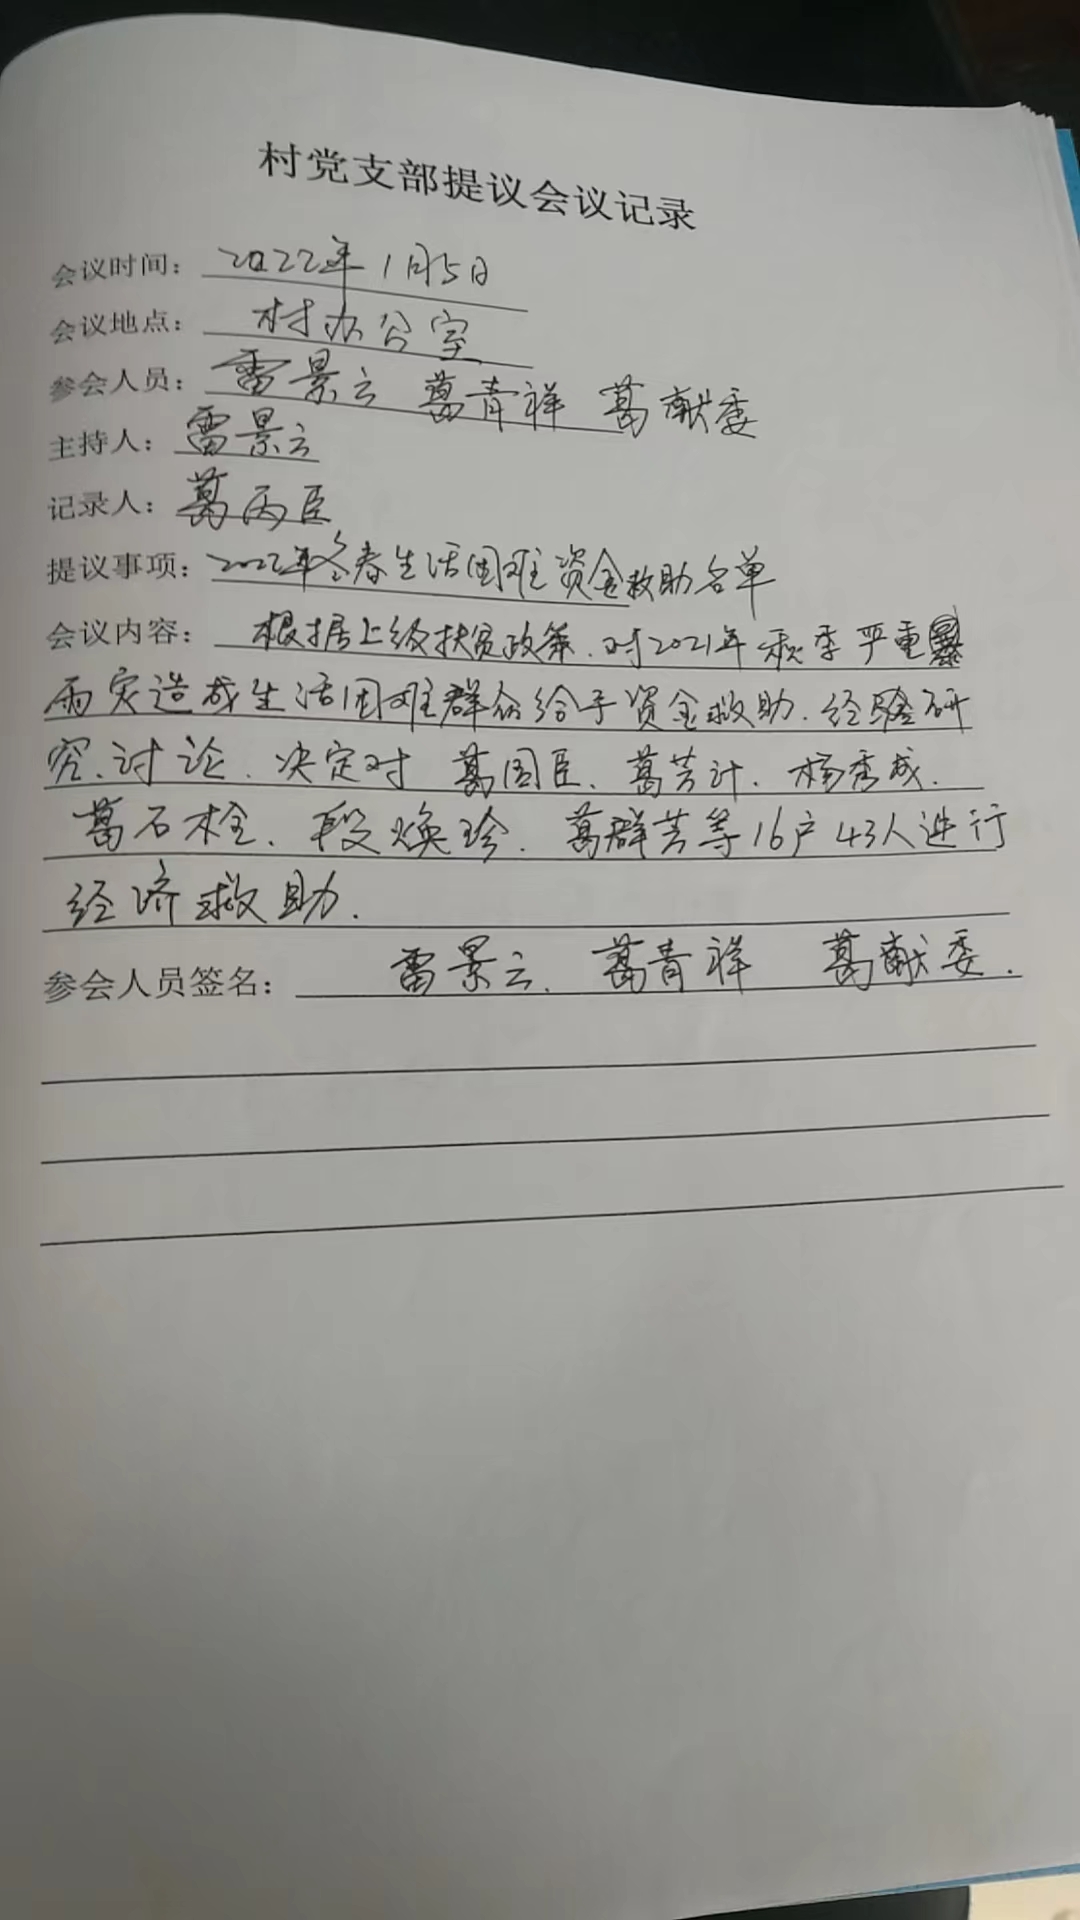 村党支部提议会议记录
会议时间：2022年1月5日
会议地点：村办公室
参会人员：雷景云 葛青祥 葛献委
主持人：雷景云
记录人：葛丙臣
提议事项：2022年冬春生活困难资金救助名单
会议内容：根据上级扶贫政策.对2021年秋季严重暴
雨灾造成生活困难群众给予资金救助.经验研
究、讨论.决定对葛国臣.葛芳计.杨秀成.
葛石栓.段焕珍.葛群芳等16户43人进行
经济救助.
参会人员签名：雷景云.葛青祥 葛献委.